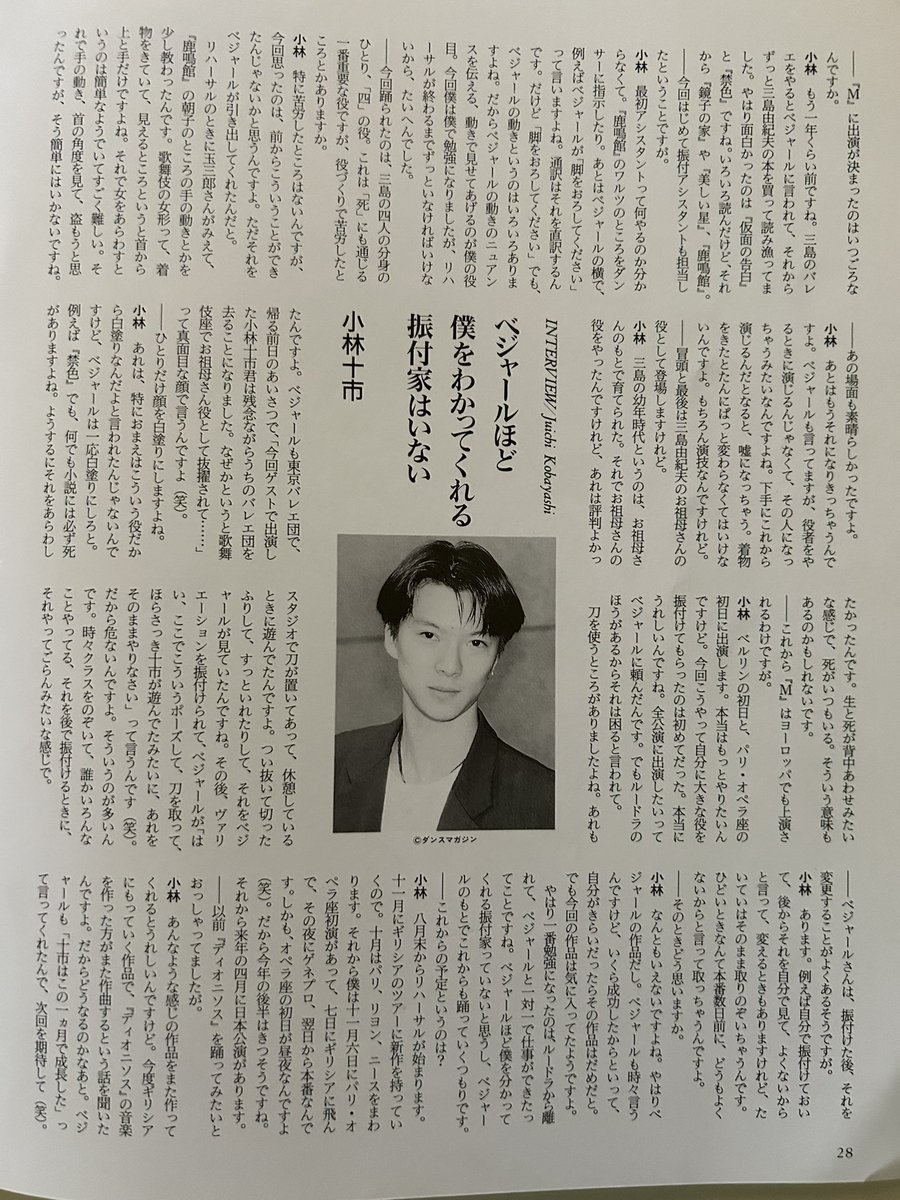 ――『M』に出演が決まったのはいつごろな
んですか。
小林　もう一年くらい前ですね。三島のバレ
エをやるとベジャールに言われて、それから
ずっと三島由紀夫の本を買って読み漁ってま
した。やはり面白かったのは『仮面の告白』
と『禁色』ですね。いろいろ読んだけど、それ
から『鏡子の家』や『美しい星』、『鹿鳴館』。
――今回はじめて振付アシスタントも担当し
たということですが。
小林　最初アシスタントって何やるのか分か
らなくて。『鹿鳴館』のワルツのところをダン
サーに指示したり。あとはベジャールの横で、
例えばベジャールが「脚をおろしてください」
って言いますよね。通訳はそれを直訳するん
です。だけど「脚をおろしてください」でも、
ベジャールの動きというのはいろいろありま
すよね。だからベジャールの動きのニュアン
スを伝える、動きで見せてあげるのが僕の役
目。今回僕は僕で勉強になりましたが、リハ
ーサルが終わるまでずっといなければいけな
いから、たいへんでした。
――今回踊られたのは、三島の四人の分身の
ひとり、「四」の役。これは「死」にも通じる
一番重要な役ですが、役づくりで苦労したと
ころとかありますか。
小林　特に苦労したところはないんですが、
今回思ったのは、前からこういうことができ
たんじゃないかと思うんですよ。ただそれを
ベジャールが引き出してくれたんだと。
リハーサルのときに玉三郎さんがみえて、
『鹿鳴館』の朝子のところの手の動きとかを
少し教わったんです。歌舞伎の女形って、着
物をきていて、見えるところというと首から
上と手だけですよね。それで女をあらわすと
いうのは簡単なようでいてすごく難しい。そ
れで手の動き、首の角度を見て、盗もうと思
ったんですが、そう簡単にはいかないですね。
――あの場面も素晴らしかったですよ。
小林　あとはもうそれになりきっちゃうんで
すよ。ベジャールも言ってますが、役者をや
るときに演じるんじゃなくて、その人になっ
ちゃうみたいなんですよね。下手にこれから
演じるんだとなると、嘘になっちゃう。着物
をきたとたんにぱっと変わらなくてはいけな
いんですよ。もちろん演技なんですけれど。
――冒頭と最後は三島由紀夫のお祖母さんの
役として登場しますけれど。
小林　三島の幼年時代というのは、お祖母さ
んのもとで育てられた。それでお祖母さんの
役をやったんですけれど、あれは評判よかっ
INTERVIEW/Juichi Kobayashi
ベジャールほど
僕をわかってくれる
振付家はいない
小林十市
たんですよ。ベジャールも東京バレエ団で、
帰る前日のあいさつで、「今回ゲストで出演し
た小林十市君は残念ながらうちのバレエ団を
去ることになりました。なぜかというと歌舞
伎座でお祖母さん役として抜擢されて……」
って真面目な顔で言うんですよ（笑）。
――ひとりだけ顔を白塗りにしますよね。
小林　あれは、特におまえはこういう役だか
ら白塗りなんだよと言われたんじゃないんで
すけど、ベジャールは一応白塗りにしろと。
例えば『禁色』でも、何でも小説には必ず死
がありますよね。ようするにそれをあらわし
たかったんです。生と死が背中あわせみたい
な感じで、死がいつもいる。そういう意味も
あるのかもしれないです。
――これから『M』はヨーロッパでも上演さ
れるわけですが。
小林　ベルリンの初日と、パリ・オペラ座の
初日に出演します。本当はもっとやりたいん
ですけど。今回こうやって自分に大きな役を
振付けてもらったのは初めてだった。本当に
うれしいんですね。全公演に出演したいって
ベジャールに頼んだんです。でもルードラの
ほうがあるからそれは困ると言われて。
刀を使うところがありましたよね。あれも
©ダンスマガジン
スタジオで刀が置いてあって、休憩している
ときに遊んでたんですよ。つい抜いて切った
ふりして、すっといれたりして、それをベジ
ャールが見ていたんですね。その後、ヴァリ
エーションを振付けられて、ベジャールが「は
い、ここでこういうポーズして、刀を取って、
ほらさっき十市が遊んでたみたいに、あれを
そのままやりなさい」って言うんです（笑）。
だから危ないんですよ。そういうのが多いん
です。時々クラスをのぞいて、誰かいろんな
ことやってる、それを後で振付けるときに、
それやってごらんみたいな感じで。
――ベジャールさんは、振付けた後、それを
変更することがよくあるそうですが。
小林　あります。例えば自分で振付けておい
て、後からそれを自分で見て、よくないから
と言って、変えるときもありますけれど、た
いていはそのまま取りのぞいちゃうんです。
ひどいときなんて本番数日前に、どうもよく
ないからと言って取っちゃうんですよ。
――そのときどう思いますか。
小林　なんともいえないですよね。やはりベ
ジャールの作品だし。ベジャールも時々言う
んですけど、いくら成功したからといって、
自分がきらいだったらその作品はだめだと。
でも今回の作品は気に入ってたようですよ。
やはり一番勉強になったのは、ルードラから離
れて、ベジャールと一対一で仕事ができたっ
てことですね。ベジャールほど僕を分かって
くれる振付家っていないと思うし、ベジャー
ルのもとでこれからも踊っていくつもりです。
――これからの予定というのは？
小林　八月末からリハーサルが始まります。
十一月にギリシアのツアーに新作を持ってい
くので。十月はパリ、リヨン、ニースをまわ
ります。それから僕は十一月六日にパリ・オ
ペラ座初演があって、七日にギリシアに飛ん
で、その夜にゲネプロ、翌日から本番なんで
す。しかも、オペラ座の初日が昼夜なんですよ
（笑）。だから今年の後半はきつそうですね。
それから来年の四月に日本公演があります。
――以前『ディオニソス』を踊ってみたいと
おっしゃってましたが。
小林　あんなような感じの作品をまた作って
くれるとうれしいんですけど。今度ギリシア
にもっていく作品で、『ディオニソス』の音楽
を作った方がまた作曲するという話を聞いた
んですよ。だからどうなるのかなあと。ベジ
ャールも「十市はこの一ヵ月で成長した」っ
て言ってくれたんで、次回を期待して（笑）。
28